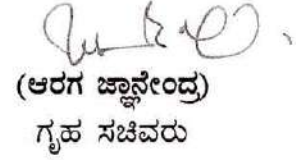 (ಆರಗ ಜ್ಞಾನೇಂದ್ರ)
ಗೃಹ ಸಚಿವರು